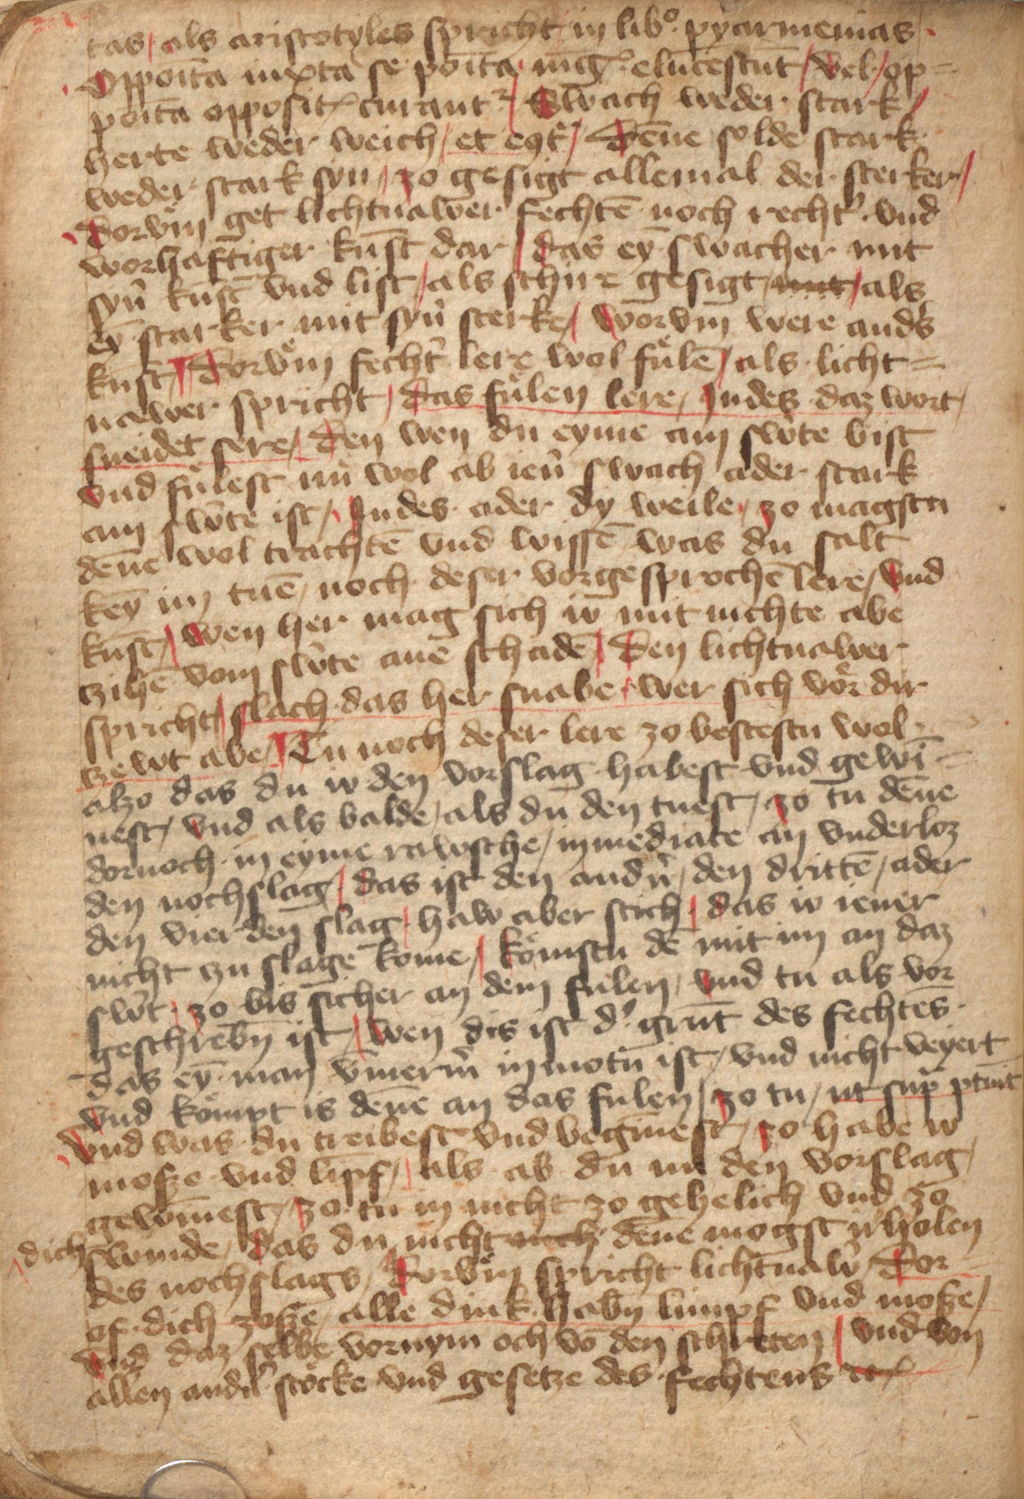 tas / als aristotyles spricht in libº pyarmenias ·
Opposita iuxta se posita mag͛ elucescunt / vel / op=
posita oppositꝭ curantʳ / Swach weder stark /
herte weder weich / et eq̊t͛ / Denne solde stark
weder stark syn / zo gesigt allemal der sterker /
Dorvm̄ get lichtnawer fechtē noch rechtˢ vnd
worhaftiger kūst dar / das eȳ swacher mit
syn̄ kūst vnd list / als schire gesigt mit / als
eȳ starker mit syn̄ sterke / worvm̄ were andˢs
kūst / Dorvm̄ fechtˢ lere wol fülē / als licht=
nawer spricht / das fülen lere / Indes daz wort /
sneidet sere / Den wen du eyme am swˢte bist
vnd fülest nu wol ab ien̄ swach ader stark
am swˢte ist / Indes ader dy weile / zo magstu
dēne wol trachtē vnd wissē was du salt
keȳ im tuē / noch deser vorgesprochē lere / vnd
kūst / wen her mag sich io mit nichte abe
czihē vom swˢte ane schadē / Den lichtnawer
spricht / slach das her snabe / wer sich vör dir
czewt abe / Tu noch deser lere zo bestestu wol ·
alzo das du io den vorslag habest vnd gewī=
nest / vnd als balde / als du den tuest / zo tu dēne
dornoch in eyme rawsche / immediate an vnderloz
den nochslag / das ist den andˢn / den drittē / ader
den vierden slag / haw aber stich / das io iener
nicht zu slage kome / Kömstu dē mit im an daz
swˢt / zo bis sicher an dem fülen / vnd tu als vor
geschrebn̄ ist / wen dis ist dˢ grūt des fechtēs
das eȳ man vmmermˢ in motu ist / vnd nicht veyert
vnd kömpt is dēne an das fülen / zo tu / ut supˢ ptuit
Vnd was du treibest vnd begīnest / zo habe io
mosze vnd limpf / als ab du im den vorslag /
gewīnest / zo tu in nicht zo gehelich vnd zo
dich swinde / das du nicht noch dēne mogst irholen
des nochslags / Dorvm̄ spricht lichtnawˢ / Dor=
of dich zosze / alle dink habn̄ limpf vnd mosze /
vnd daz selbe vornym och vō den schreten / vnd von
allen andˢn stöcke vnd gesetze des fechtens ꝛcꝭ